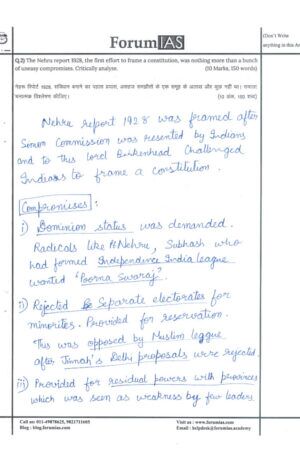 Forum IAS
(Don't Write
anything in this Ar
Q.2) The Nehru report 1928, the first effort to frame a constitution, was nothing more than a bunch
of uneasy compromises. Critically analyse. (10 Marks, 150 words)
नेहरू रिपोर्ट 1928, संविधान बनाने का पहला प्रयास, असहज समझौतों के एक समूह के अलावा और कुछ नहीं था।
(10 अंक, 150 शब्द)
Nehru report 1928 was framed after
Simon Commission was resented by Indians
and to this lord Birkenhead Challenged
Indians to frame a constitution.
Compromises:
i) Dominion status was demanded.
Radicals like Nehru, Subhash who
had formed Independence India league
wanted 'Poorna Swaraj'.
ii) Rejected Separate electorates for
minorites. Provided for reservation.
This was opposed by Muslim league
after Jinnah's Delhi proposals were rejected.
iii) Provided for residual powers with provinces
which was seen as weakness by few leaders
Call us: 011-49878625, 9821711605
Visit us : www.forumias.com
Blog : blog.forumias.com
Email : helpdesk@forumias.academy